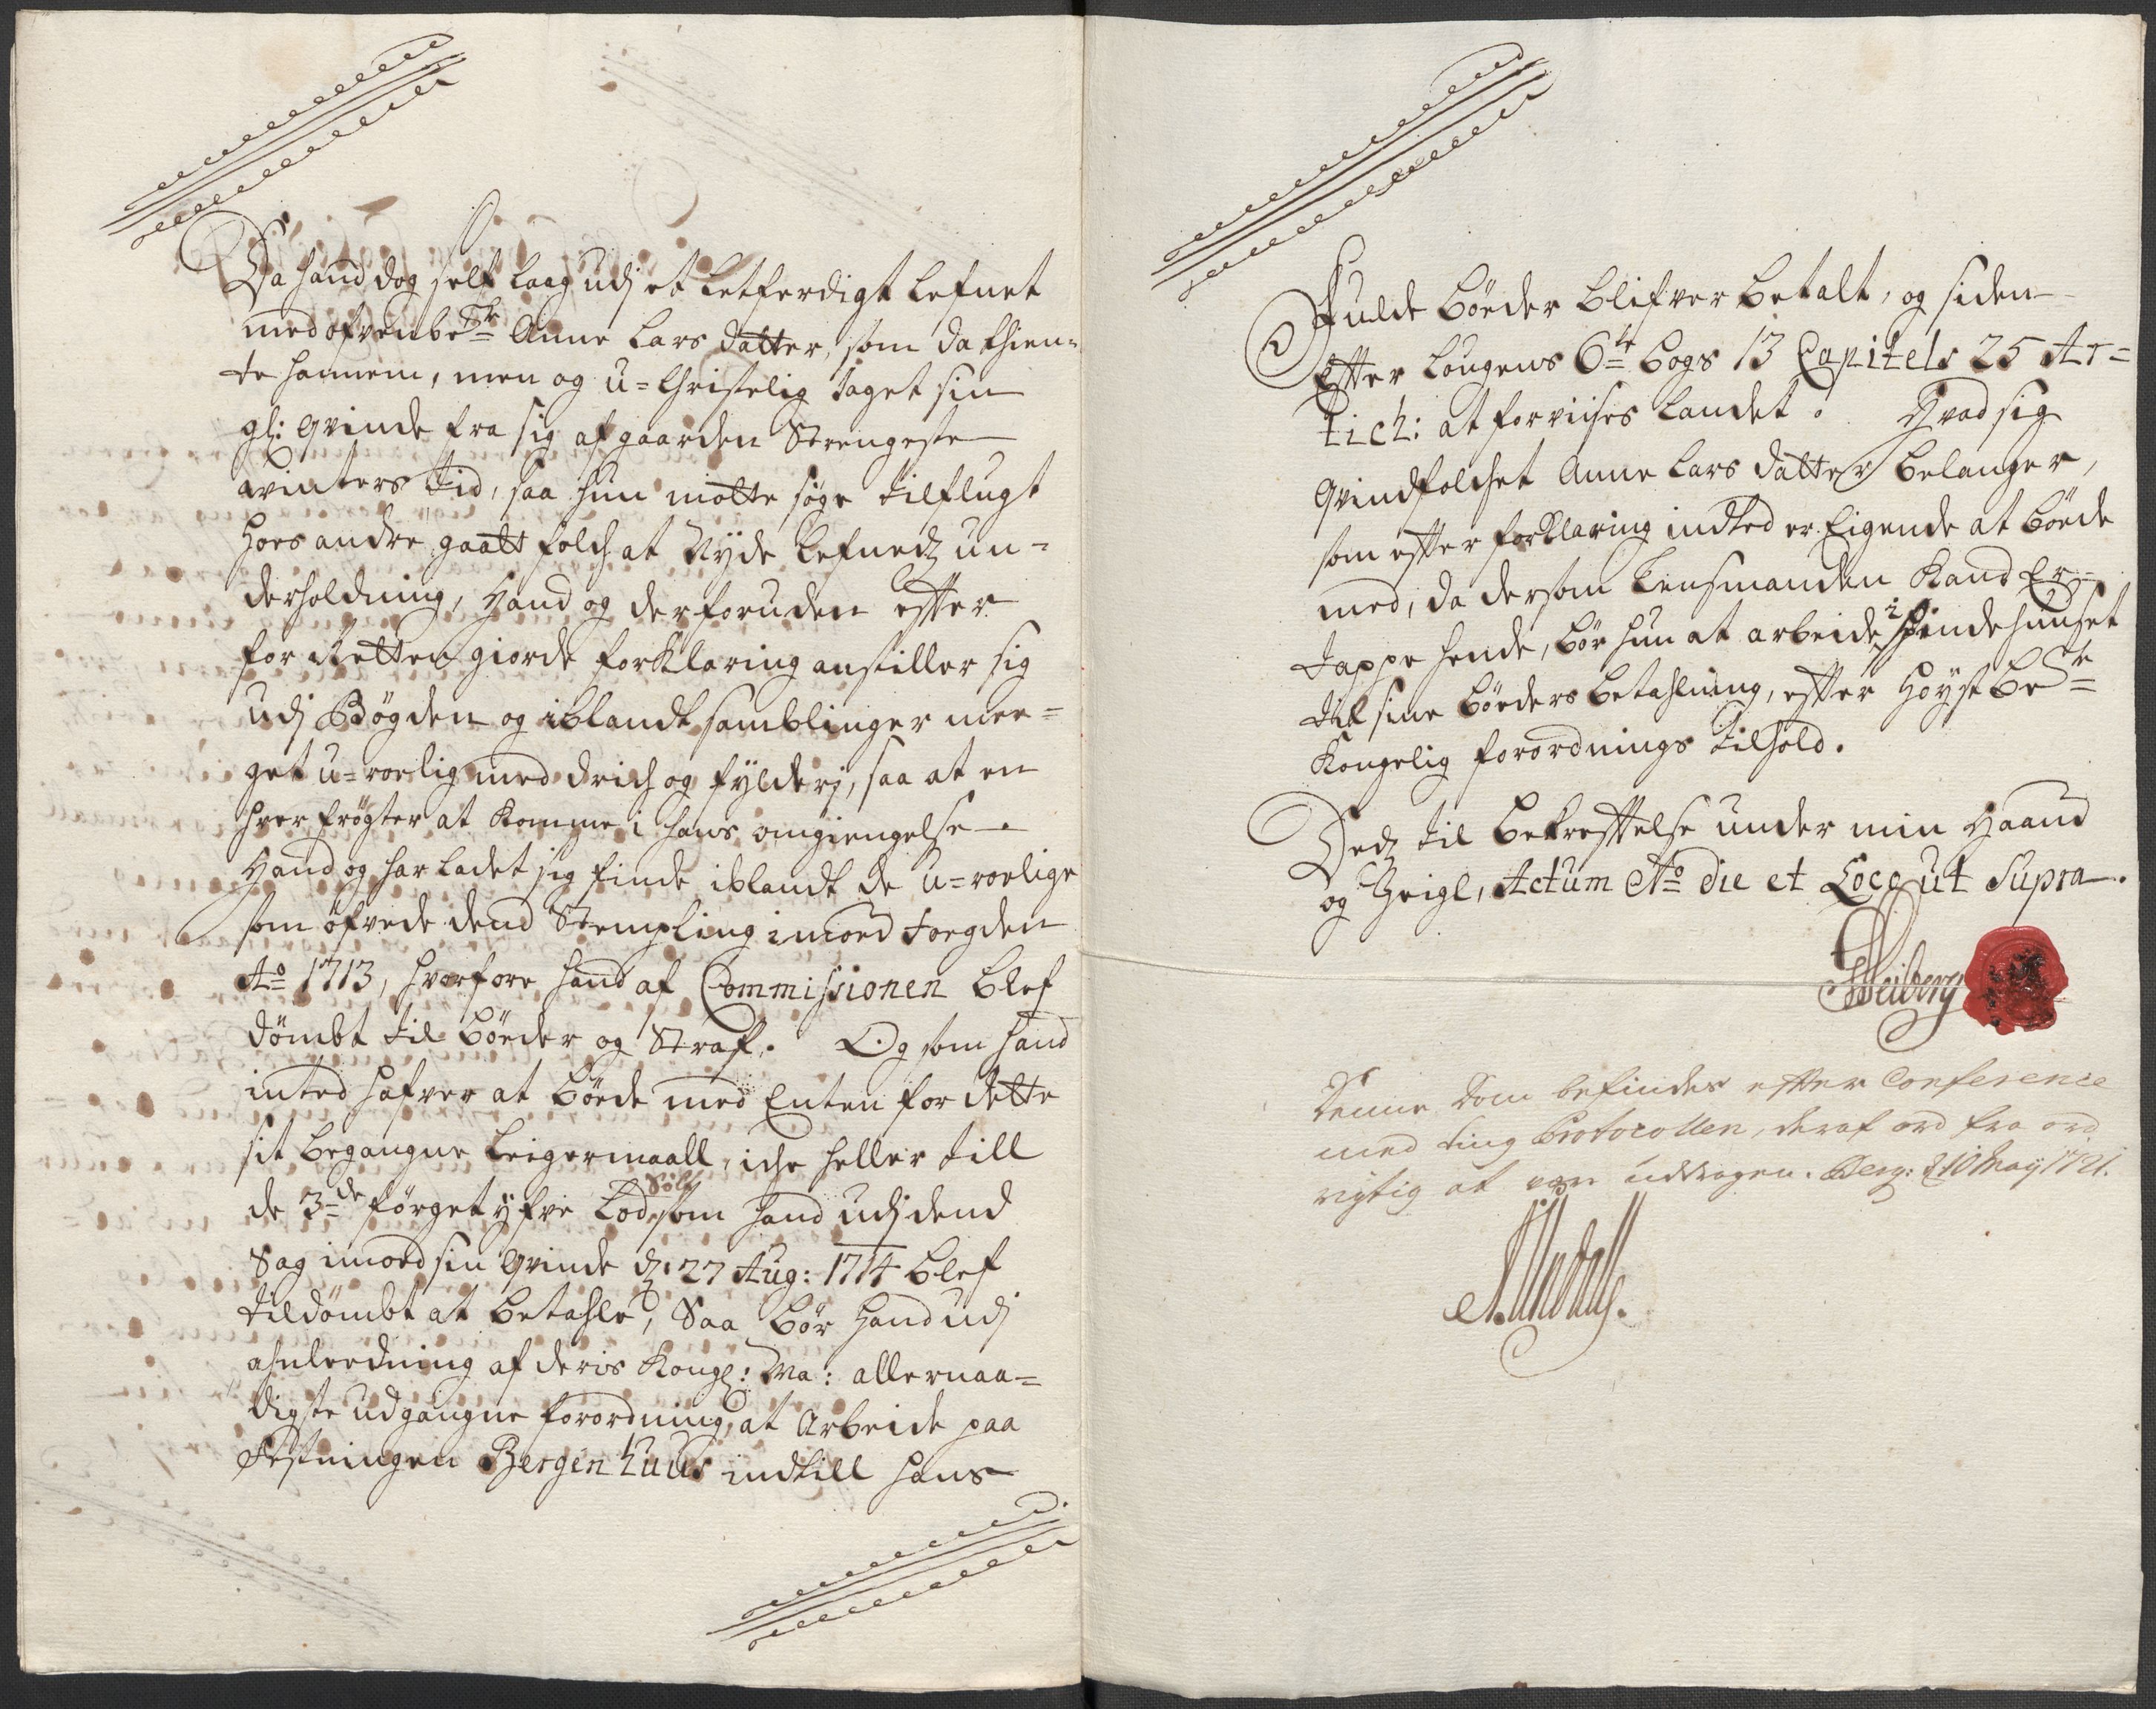 Da hand dog self laag udj et Letferdigt Lefnet
med ofvenbe<sup>te</sup> Anne Lars datter, som da thien-
te hannem, men og u-Christelig taget sin
gl: Qvinde fra sig af gaarden Strengeste
winters tid, saa hun motte søge tilflugt
hoes andre gaatt folch at Nyde Lefnedz un-
derholdning, Hand og derforuden efter
for Retten giorde forklaring anstiller sig
udj Bøgden og iblandt samblinger mee-
get u-roelig med drich og fylderj, saa at en
hver frøgter at komme i hans omgiengelse.
Hand og har ladet sig finde iblandt de u-roelige
som øfvede dend Stempling imod foegden
Ao 1713, hvorfore hand af Commissionen blef
dømbt til bøeder og Straf. Og som hand
inted hafver at bøede med Enten for dette
sit begangne Leigermaall, iche heller till
de 3<sup>de</sup> førgetyfve Lod Sølf som hand udj dend
Sag imod sin Qvinde d: 27 Aug: 1714 blef
tildømbt at betahle, Saa bør hand udj
ahnleedning af deris Kongl: Ma: allernaa-
digste udgangne forordning, at Arbeide paa
Festningen Bergenhuus indtill hans
Fulde bøeder blifver betalt, og siden
Efter Lougens 6<sup>te</sup> bogs 13 Capitels 25 Ar-
tich: at forviises Landet. Hvad sig
Qvindfolchet Anne Lars datter belanger,
som efter forklaring indted er Eigende at bøede
med, da dersom Lensmanden kand Er-
tappe hende, bør hun at arbeide i Spindehuuset
til sine bøeders betahlning, efter Høystbe<sup>te</sup>
Kongelig forordnings tilhold.
Dedz til bekreftelse under min Haand
og Zeigl, Actum Ao die et Loco ut Supra.
Heiberg
Denne Dom befindes efter Conference
med ting Protocollen, deraf ord fra ord
rigtig at være uddragen. Berg: d 10 Maij 1721.